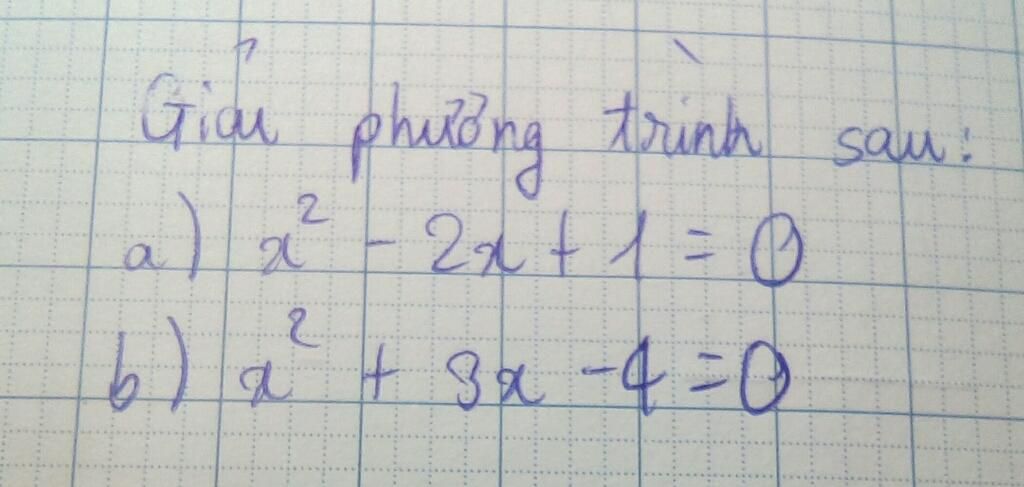 Giải phương trình sau:
a) x² - 2x + 1 = 0
b) x² + 3x - 4 = 0